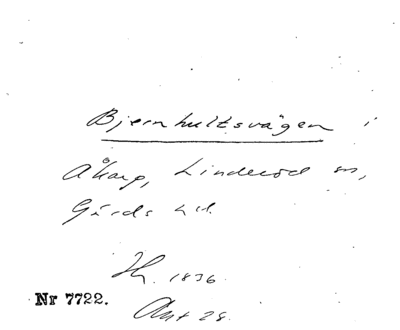 Bjernhultsvägen i
Åkarp, Linderöd sn,
Gärds hd.
Hy. 1836.
Nr 7722.
Akt 28.